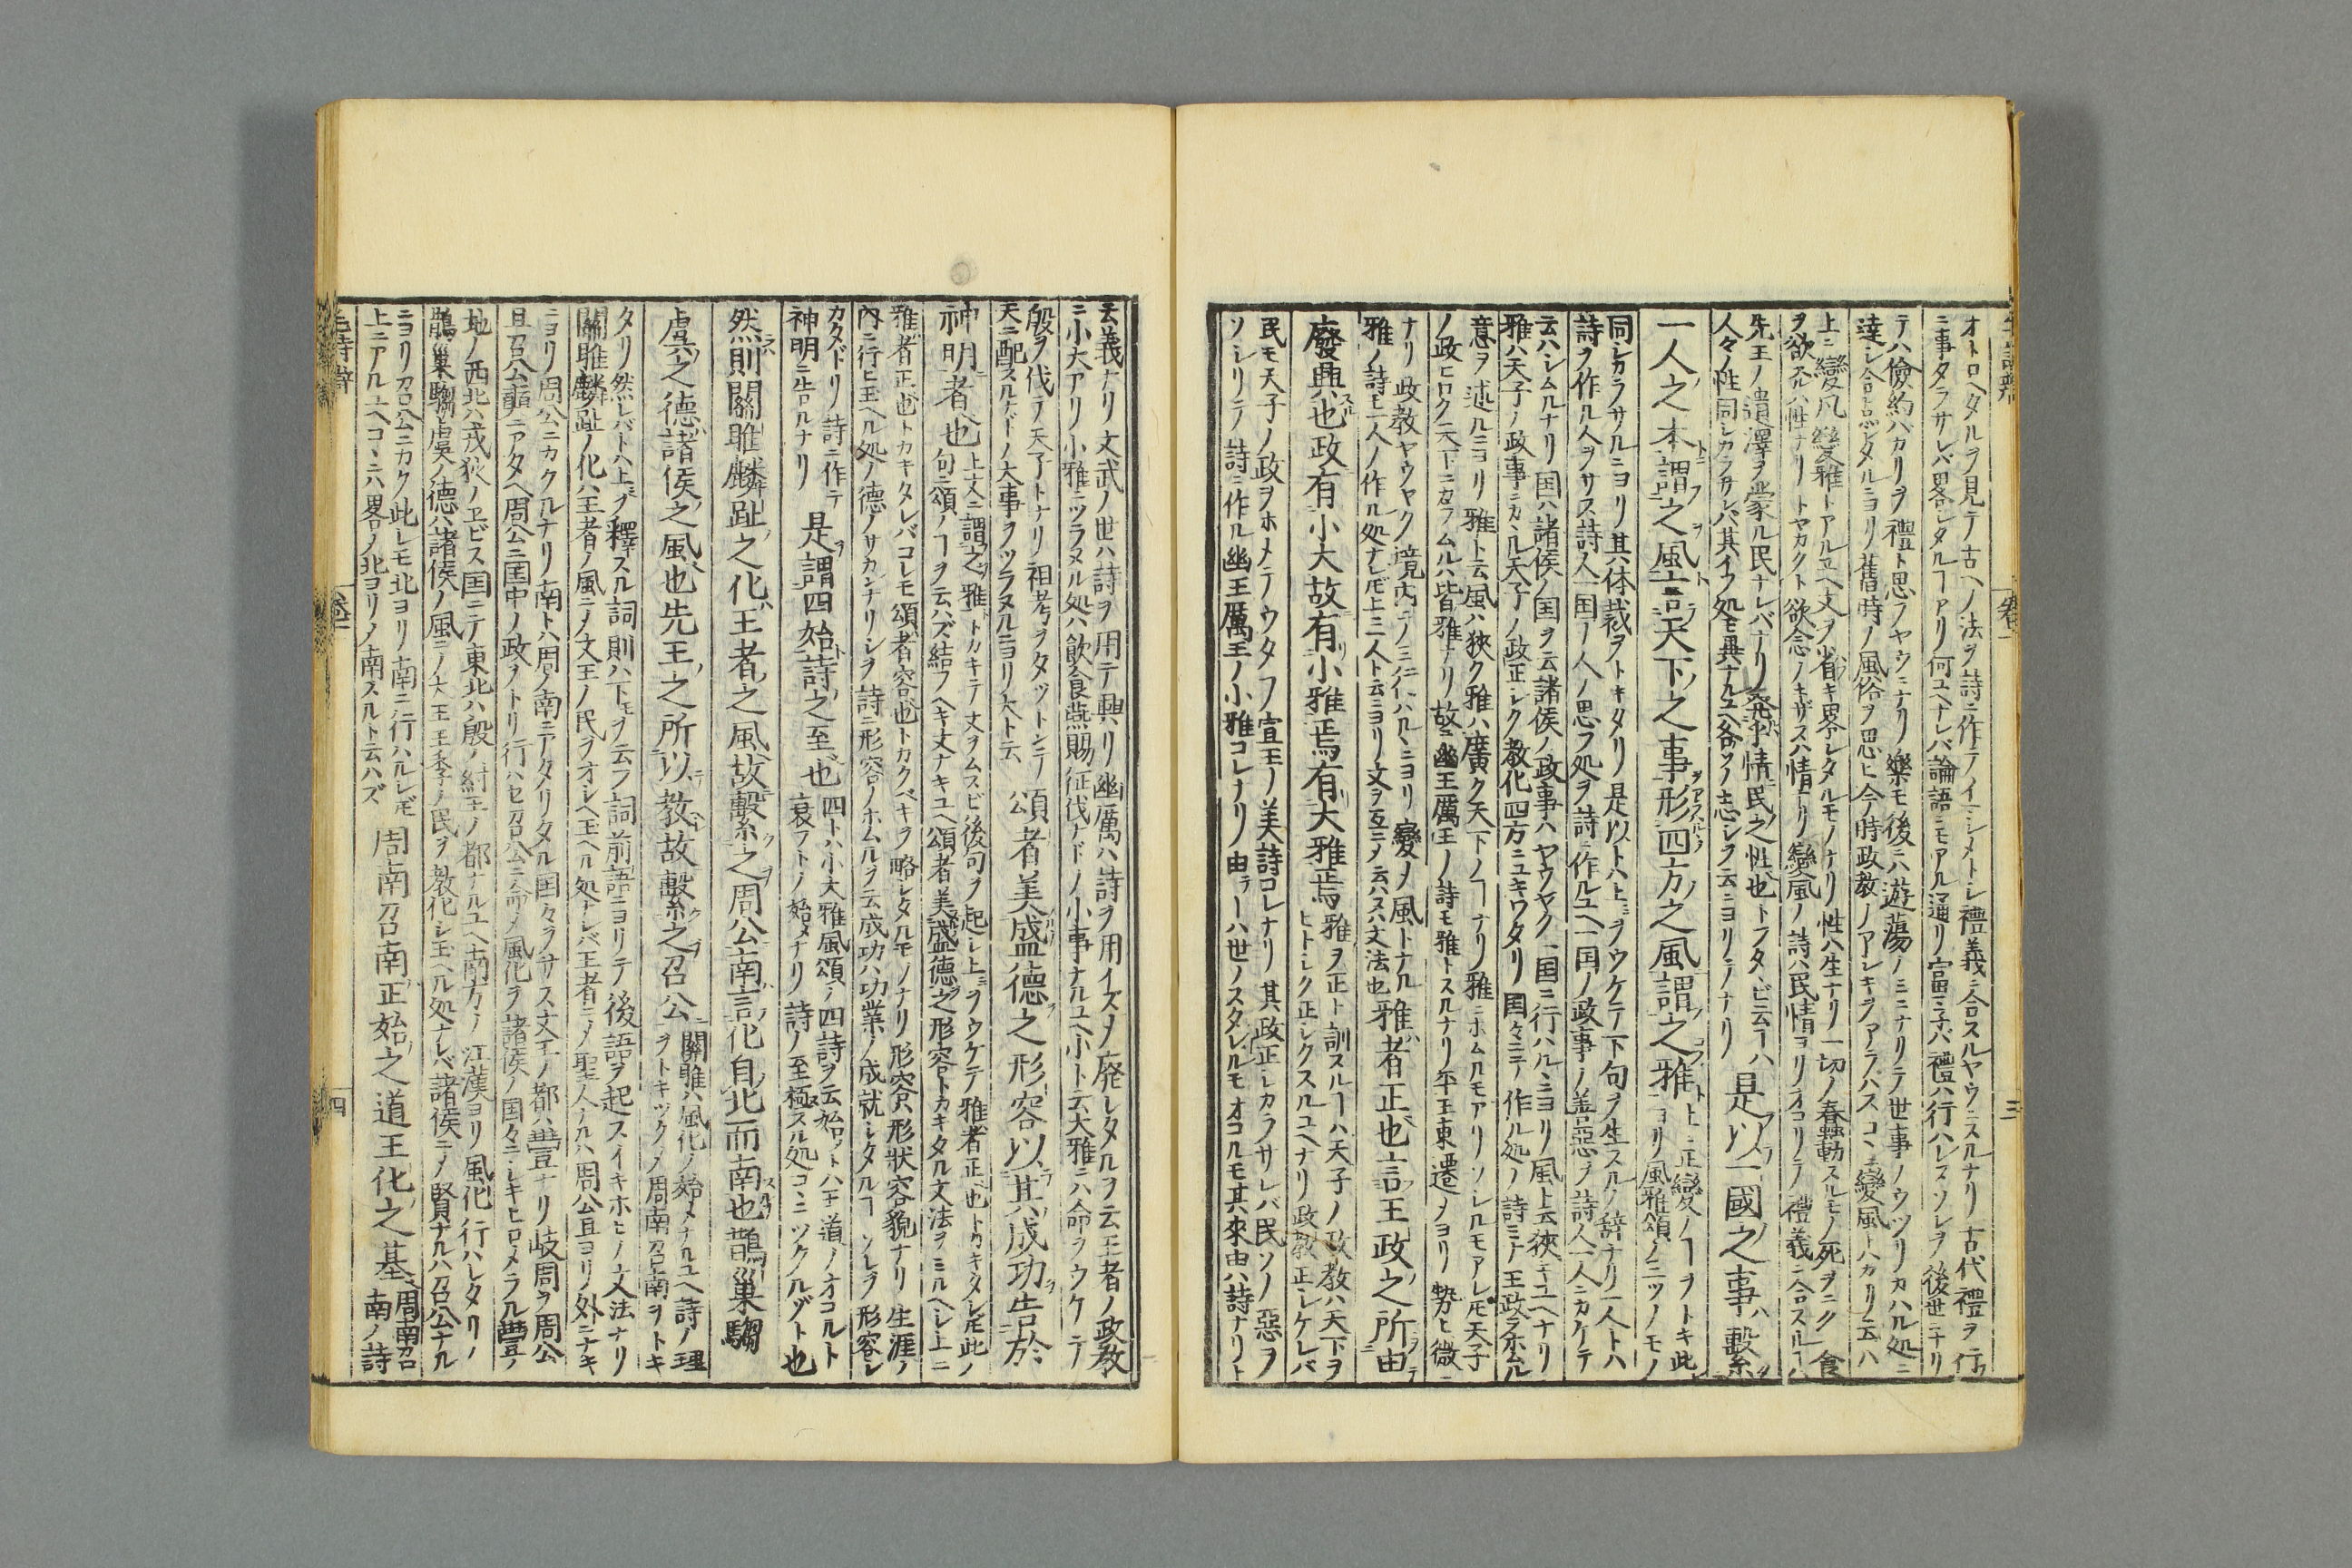 オトロヘタルヲ見テ古ヘノ法ヲ詩ニ作テイマシメトシ禮義ニ合スルヤウニスルナリ古代禮ヲ行
ニ事タラサレバ畧シタルヿアリ何ユヘナレバ論語ニモアル通リ富ミ子バ禮ハ行ハレズソレヲ後世ニナリ
テハ儉約バカリヲ禮ト思フヤウニナリ樂モ後ニハ遊蕩ノミニナリテ世事ノウツリカハル処ニ
達シ合点シタルニヨリ舊時ノ風俗ヲ思ヒ今時政教ノアシキヲアラハス
上ニ變凡變雅トアルユヘ文ヲ省キ畧シタルモノナリ性ハ生ナリ一切ノ春蠢動スルモノ死ヲニク食
ヲ欲スルハ性ナリトヤカクト欲念ノキザスハ情ナリ變風ノ詩ハ民情ヨリオコリテ禮義ニ合スルハ
先王ノ遺澤ヲ蒙ル民ナレバナリ發乎情民之性也トフタヽビ云フハ
人々ノ性同シカラサレバ其イフ処モ異ナルユヘ各ソノ志シヲ云ニヨリテナリ 是以一國之事繫
一人之本謂之風言天下之事形四方之風謂之雅
上ニ正變ノヿヲトキ此
ヨリ風雅頌ノ三ツノモノ
同シカラサルニヨリ其体裁ヲトキタリ是以トハ上ヲウケテ下句ヲ生スルノ辞ナリ一人トハ
詩ヲ作ル人ヲサス詩人一国ノ人ノ思フ処ヲ詩ニ作ルユヘ一国ノ政事ノ善惡ヲ詩人一人ニカケテ
云ハシムルナリ国ハ諸侯ノ国ヲ云諸侯ノ政事ハヤウヤク一国ニ行ハルヽニヨリ風ト云狹キユヘナリ
雅ハ天子ノ政事ニカヽル天子ノ政正シク教化四方ニユキワタリ国々ニテ作ル処ノ詩ミナ王政ヲホムル
意ヲ述ルニヨリ雅ト云風ハ狹ク雅ハ廣ク天下ノヿナリ雅ニホムルモアリソシルモアレ𪜈天子
ノ政ヒロク天下ニカヽフムルハ皆雅ナリ故ニ幽王厲王ノ詩モ雅トスルナリ平王東遷ノヨリ勢ヒ微
ナリ政教ヤウヤク境内ノミニ行ハルヽニヨリ變ノ風トナル
雅ノ詩モ一人ノ作ル処ナレ𪜈上ニ一人ト云ニヨリ文ヲ互ニノ云ハズ文法也
雅者正也言王政之所由
廢興也政有小大故有小雅焉有大雅焉
雅ヲ正ト訓スルヿハ天子ノ政教ハ天下ヲ
ヒトシク正シクスルユヘナリ政教正シケレバ
民モ天子ノ政ヲホメテウタフ宣王ノ美詩コレナリ其政正シカラサレバ民ソノ惡ヲ
ソシリテ詩ニ作ル幽王厲王ノ小雅コレナリ由ラーハ世ノスタレルモオコルモ其來由ハ詩ナリト
卷一
三
云義ナリ文武ノ世ハ詩ヲ用テ興リ幽厲ハ詩ヲ用イズノ廢レタルヲ云王者ノ政教
ニ小大アリ小雅ニツラヌル処ハ飲食燕賜征伐ナドノ小事ナルユヘ小ト云大雅ニハ命ヲウケテ
殷ヲ伐テ天子トナリ祖考ヲタツトンデ
天ニ配スルナドノ大事ヲツラヌルニヨリ大ト云
頌者美盛德之形容以其成功告於
神明者也
上文ニ謂之雅トカキテ文ヲムスビ後句ヲ起シ上ヲウケテ雅者正也トカキタレ𪜈此ノ
句ニ頌ノヿヲ云ハズ結フヘキ文ナキユヘ頌者美盛德之形容トカキタル文法ヲミルヘシ上ニ
雅者正也トカキタレバコレモ頌者容也トカクベキヲ略シタルモノナリ形容ハ形狀容貌ナリ生涯ノ
内ニ行ヒ玉ヘル処ノ德ノサカンナリシヲ詩ニ形容ノホムルヲ云成功ハ功業ノ成就シタルヿソレヲ形容シ
カタドリ詩ニ作テ
神明ニ告ルナリ
是謂四始詩之至也
四トハ小大雅風頌ノ四詩ヲ云始ヿハ王道ノオコルト
衰フトノ始メナリ詩ノ至極スル処コヽニツクルゾト也
然則關雎麟趾之化王者之風故繫之周公南言化自北而南也鵲巢騶
虞之德諸侯之風也先王之所以教故繫之召公
關雎ハ風化ノ始メナルユヘ詩ノ理
ヲトキツクノ周南召南ヲトキ
タリ然レバトハ上ヲ釋スル詞則ハ下モヲ云フ詞前語ニヨリテ後語ヲ起スイキホヒノ文法ナリ
關雎麟趾ノ化ハ王者ノ風ニノ文王ノ民ヲオシヘ玉ヘル処ナレバ王者ニノ聖人ナルハ周公旦ヨリノ外ニナキ
ニヨリ周公ニカクルナリ南トハ周ノ南ニアタリタル国々ヲサス文王ノ都ハ豐ナリ岐周ヲ周公
旦召公奭ニアタヘ周公ニ国中ノ政ヲトリ行ハセ召公ニ命メ風化ヲ諸侯ノ国々ニシキヒロメラル豐ノ
地ノ西北ハ戎狄ノエビス国ニテ東北ハ殷ノ紂王ノ都ナルユヘ南方ノ江漢ヨリ風化行ハレタリノ
鵲巢騶虞ノ德ハ諸侯ノ風ニノ大王王季ノ民ヲ教化シ玉ヘル処ナレバ諸侯ニノ賢ナルハ召公ナル
ニヨリ召公ニカク此レモ北ヨリ南ニ行ハルレ𪜈
上ニアルユヘコヽニハ畧ノ北ヨリノ南スルト云ハズ
周南召南正始之道王化之基
周南召
南ノ詩
四